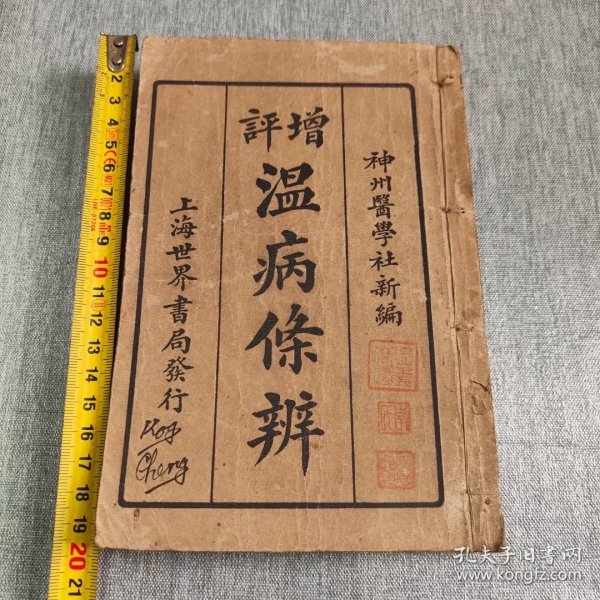 神州醫學社新編
增評
温病條辨
上海世界書局發行
Cheng
2
3
4
5
6
7
8
9
10
11
12
13
14
15
16
17
18
19
20
21
孔夫子旧书网
www.kongfz.com